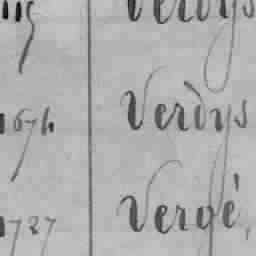 Verdys
1674 Verdys
1727 Vergé,